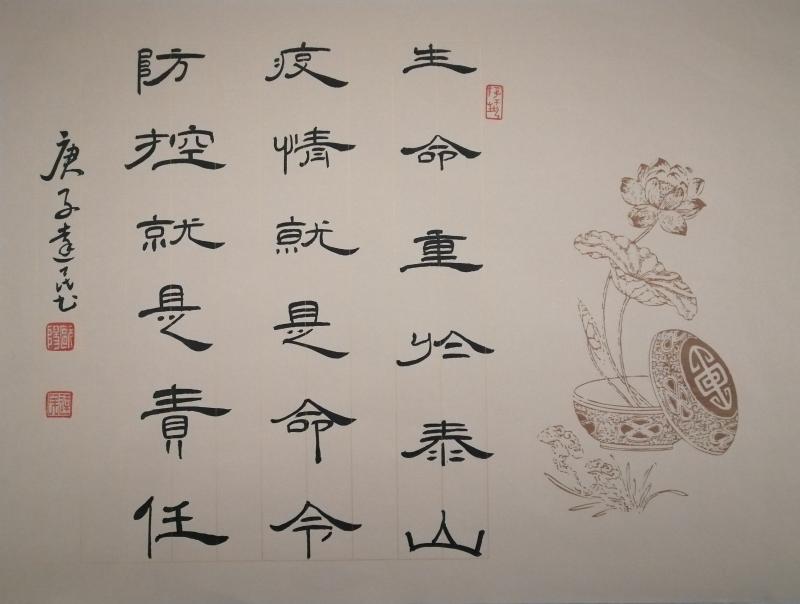 生命重於泰山
疫情就是命令
防控就是責任
庚子達